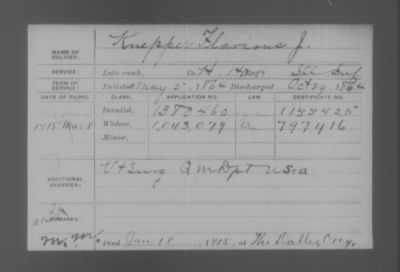 NAME OF SOLDIER: Knepper Flavious J.
SERVICE: Late rank, Co H, 140 Regt Ill Inf
TERM OF SERVICE: Enlisted May 2, 1864 Discharged Oct 29, 1864
DATE OF FILING. CLASS. APPLICATION NO. LAW. CERTIFICATE NO.
Invalid, 1380460 1155425
1915 Mar 8 Widow, 1,043,079 a 797416
Minor,
ADDITIONAL SERVICES: V + Surg Q M Dpt USA
REMARKS:
Died Jan 18, 1915, at The Dalles Oreg.